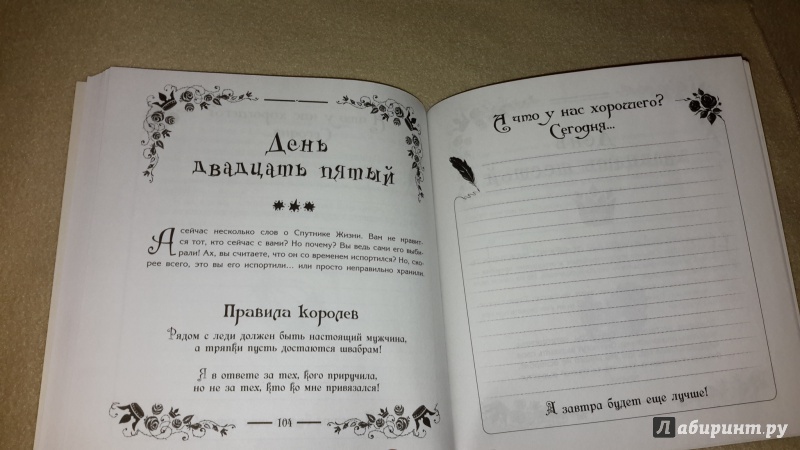 День
двадцать пятый
А сейчас несколько слов о Спутнике Жизни. Вам не нравит-
ся тот, кто сейчас с вами? Но почему? Вы ведь сами его выби-
рали! Ах, вы считаете, что он со временем испортился? Но, ско-
рее всего, это вы его испортили... или просто неправильно хранили.
Правила королев
Рядом с леди должен быть настоящий мужчина,
а тряпки пусть достаются швабрам!
Я в ответе за тех, кого приручила,
но не за тех, кто ко мне привязался!
104
А что у нас хорошего?
Сегодня...
А завтра будет еще лучше!
Лабиринт.ру